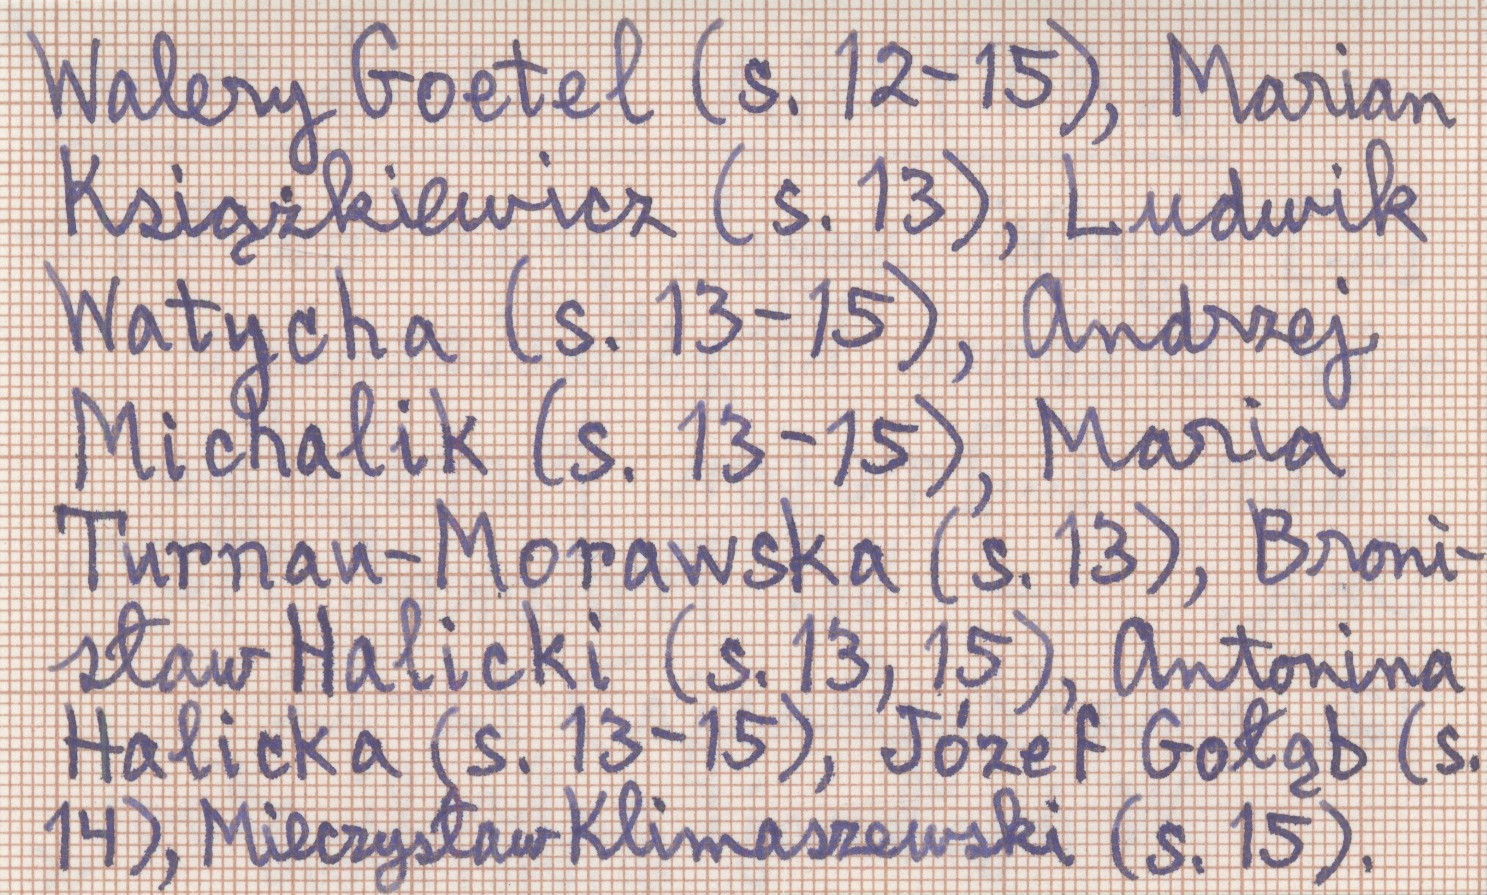 Walery Goetel (s. 12-15), Marian
Książkiewicz (s. 13), Ludwik
Watycha (s. 13-15), Andrzej
Michalik (s. 13-15), Maria
Turnau-Morawska (s. 13), Broni-
sław Halicki (s. 13, 15), Antonina
Halicka (s. 13-15), Józef Gołąb (s.
14), Mieczysław Klimaszewski (s. 15).